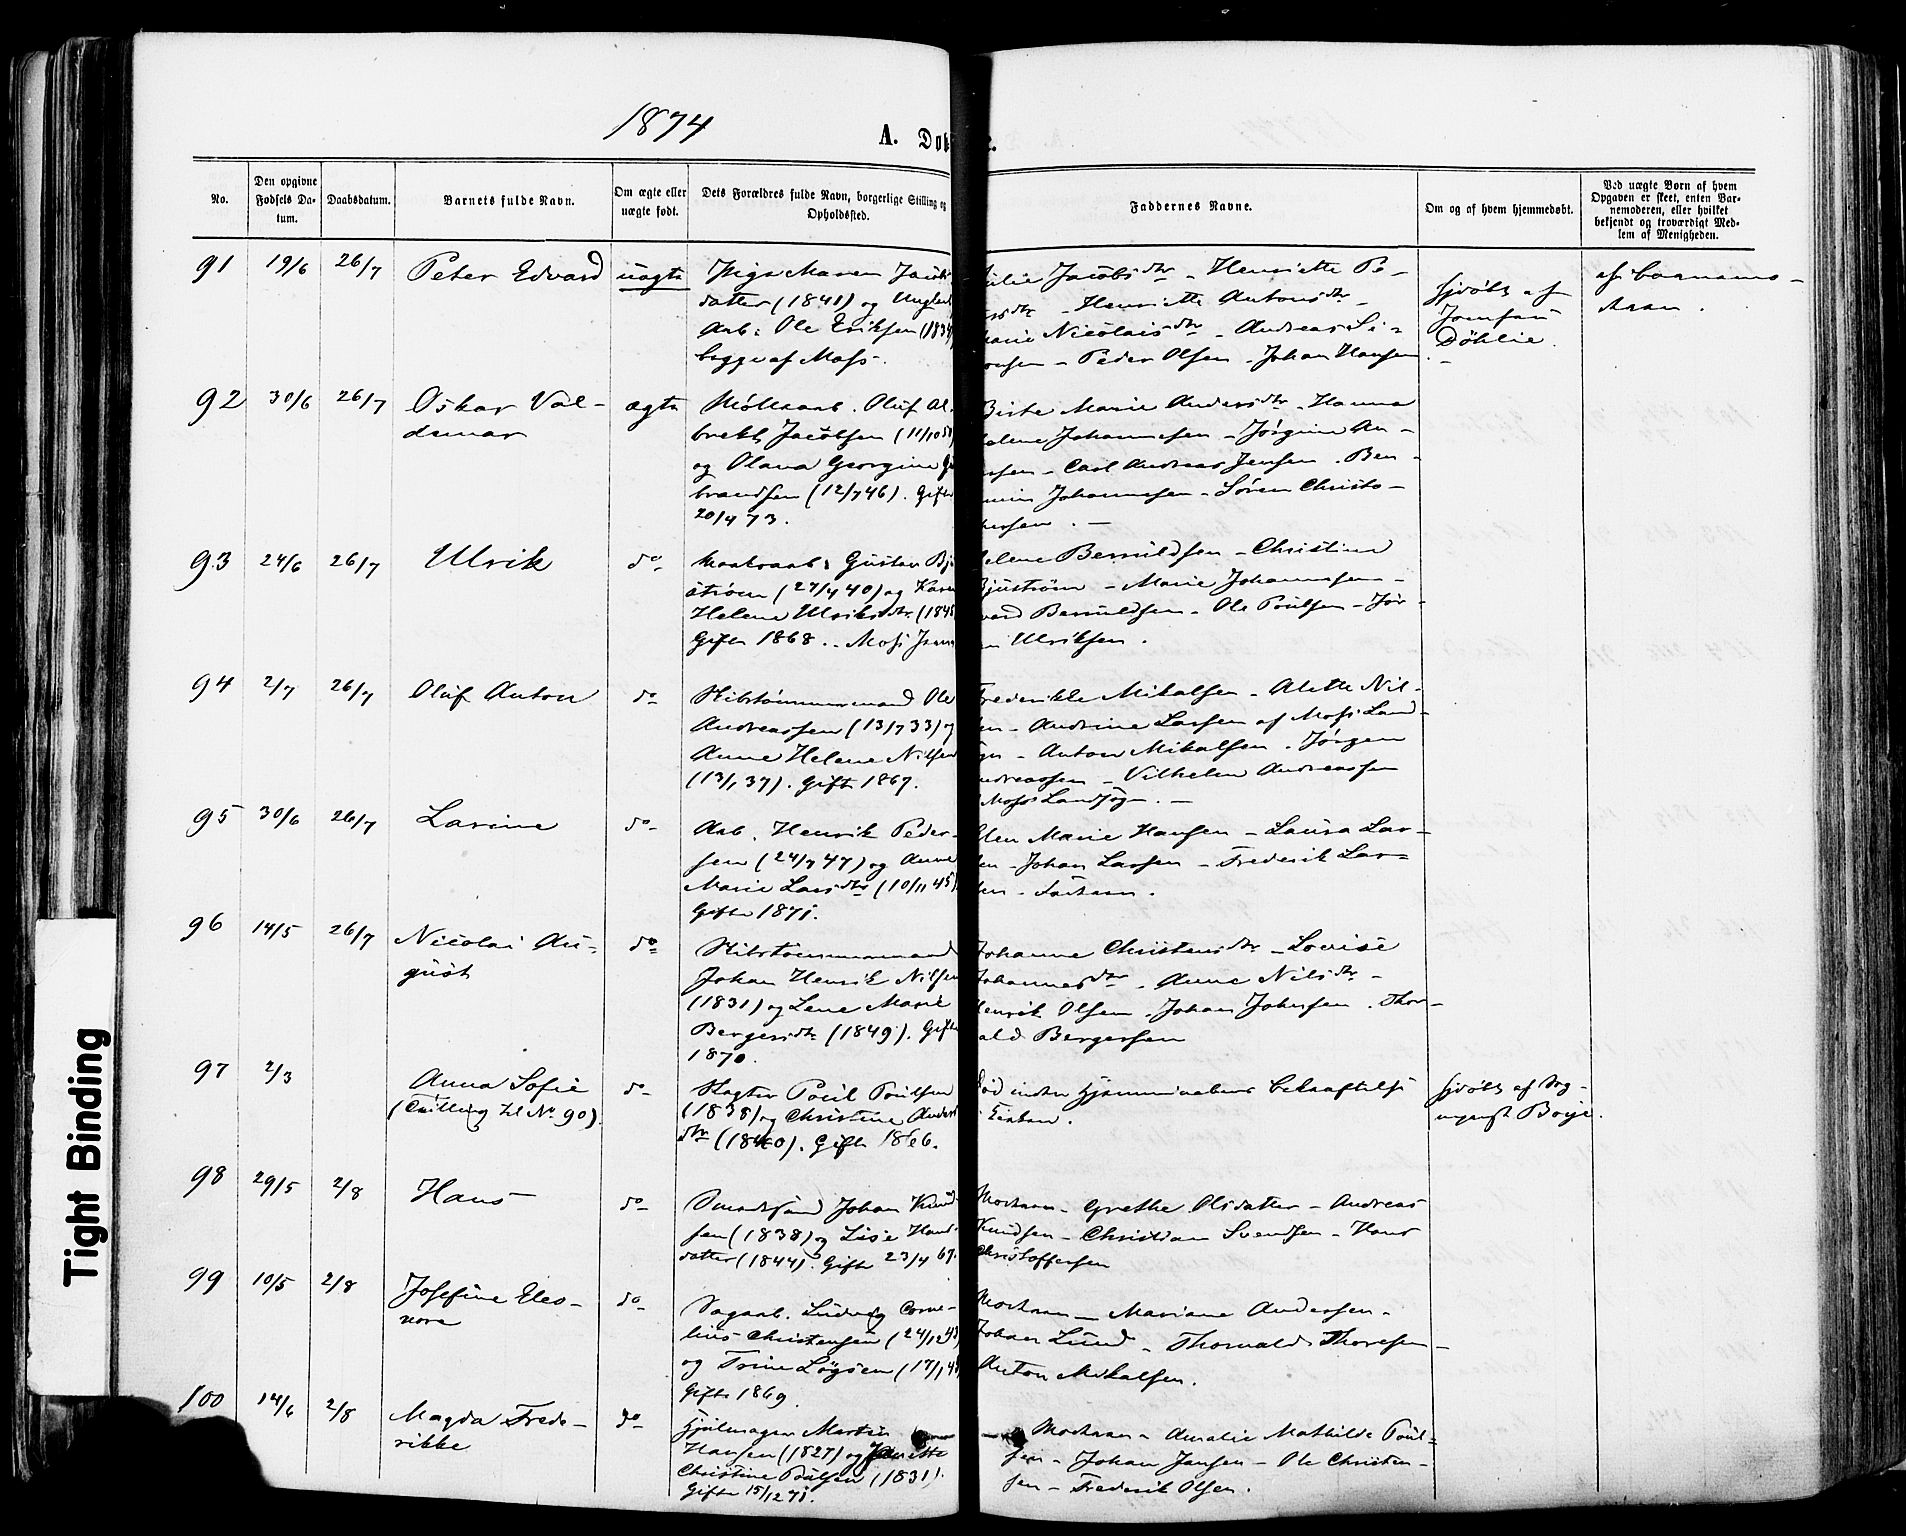 1874
A. Døb
e.
No.
Den opgivne Fødsels Da-
tum.
Daabsdatum.
Barnets fulde Navn.
Om ægte eller
uægte født.
Dets Forældres fulde Navn, borgerlige Stilling og
Opholdssted.
Faddernes Navne.
Om og af hvem hjemmedøbt.
Ved uægte Børn af hvem
Opgaven er skeet, enten Bar-
nemoderen, eller hvilket
bekjendt og troværdigt Med-
lem af Menigheden.
91 19/6 26/7 Peter Edvard uægte
Pige Maren Jacobs
datter (1841) og Ungkarl
Arb: Ole Eriksen (183
begge af Moss.
Jacobsdtr - Henriette Pe-
dtr - Henriette Antonsdtr -
Nicolaisdtr - Andreas Si-
- Peder Olsen - Johan Hansen
hjdøbt af
Jomfru
Döhlie.
af Barnemo-
deren.
92 30/6 26/7 Oskar Val-
demar
ægte
Møllearb. Oluf Al-
brekt Jacobsen (11/10 5
og Olava Georgine G
brandsen (12/7 46). Gift
20/4 73.
Birte Marie Andersdtr - Hanna
Johannesen - Jørgine An-
- Carl Andreas Jensen - Ben-
Johannesen - Søren Christo-
93 24/6 26/7 Ulrik do
Gustav Bj
strøm (27/4 40) og Karen
Helene Ulriksdtr (184
Gift 1868. - Moss
Helene Bernildsen - Christine
Bjuström - Marie Johannesen -
Bernildsen - Ole Poulsen - Jør-
Ulriksen.
94 2/7 26/7 Oluf Anton do
Skibstømmermand Ole
Andreassen (13/7 33) og
Anne Helene Nilsen
(13/1 37). Gift 1867.
Frederikke Mikalsen - Alette Nil-
- Andrine Larsen af Moss Land-
- Anton Mikalsen - Jørgen
- Vilhelm Andreassen
Moss Landsogn. -
95 30/6 26/7 Larine do
Arb. Henrik Peder-
sen (24/7 47) og Anne
Marie Larsdtr (10/11 45)
Gift 1871.
Elen Marie Hansen - Laura Lar-
sen - Johan Larsen - Frederik Lar-
sen - Faderen.
96 14/5 26/7 Nicolai Au-
gust
do
Skibstømmermand
Johan Henrik Nilsen
(1831) og Lene Marie
Bergersdtr (1849). Gift
1870.
Johanne Christensdtr - Lovise
Johannesdtr - Anne Nilsdtr -
Henrik Olsen - Johan Johnsen - Thor-
vald Bergersen
97 2/3 Anna Sofie
(Tvilling til No 90).
do
Slagter Poul Poulsen
(1838) og Christine Anders
dtr (1840). Gift 1866.
Død inden Hjemmedaabens bekræftelse
i Kirken.
hjdøbt af
Boye.
98 29/5 2/8 Hans do
Johan Knud-
sen (1838) og Lise Hans-
datter (1844). Gift 23/4 67.
Moderen - Grethe Olsdatter - Andreas
Knudsen - Christian Svendsen - Hans
Christoffersen
99 10/5 2/8 Josefine Eleo-
nora
do
Sagarb. Ludvig Corne-
lius Christensen (24/12 4
og Trine Løgsen (17/1 4
Gift 1869.
Moderen - Mariane Andersen -
Johan Lund - Thorvald Thoresen -
Anton Mikalsen.
100 14/6 2/8 Magda Frede-
rikke
do
Hjulmager Martin
Hansen (1827) og Janette
Christine Poulsen (1831).
Gift 15/12 71.
Moderen - Amalie Mathilde Poul-
sen - Johan Jansen - Ole Christen-
sen - Frederik Olsen.
Tight Binding